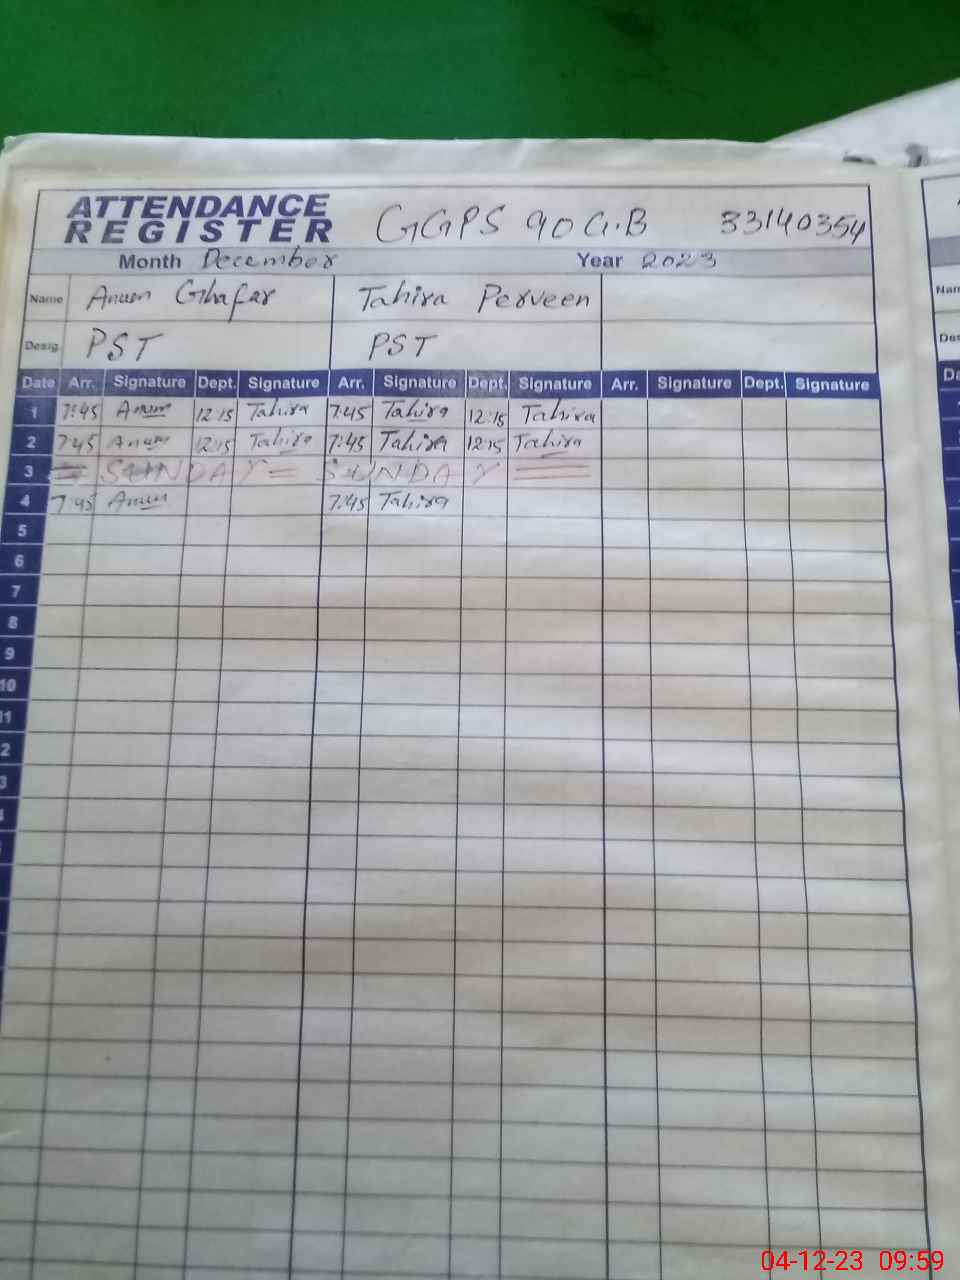 ATTENDANCE
REGISTER GGPS 90 G.B 33140354
Month December Year 2023
Name Anum Ghafar Tahira Perveen
Desig. PST PST
Date Arr. Signature Dept. Signature Arr. Signature Dept. Signature Arr. Signature Dept. Signature
1 7:45 Anum 12:15 Tahira 7:45 Tahira 12:15 Tahira
2 7:45 Anum 12:15 Tahira 7:45 Tahira 12:15 Tahira
3 = SUNDAY = SUNDAY
4 7:45 Anum 7:45 Tahira
5
6
7
8
9
10
11
2
3
04-12-23 09:59